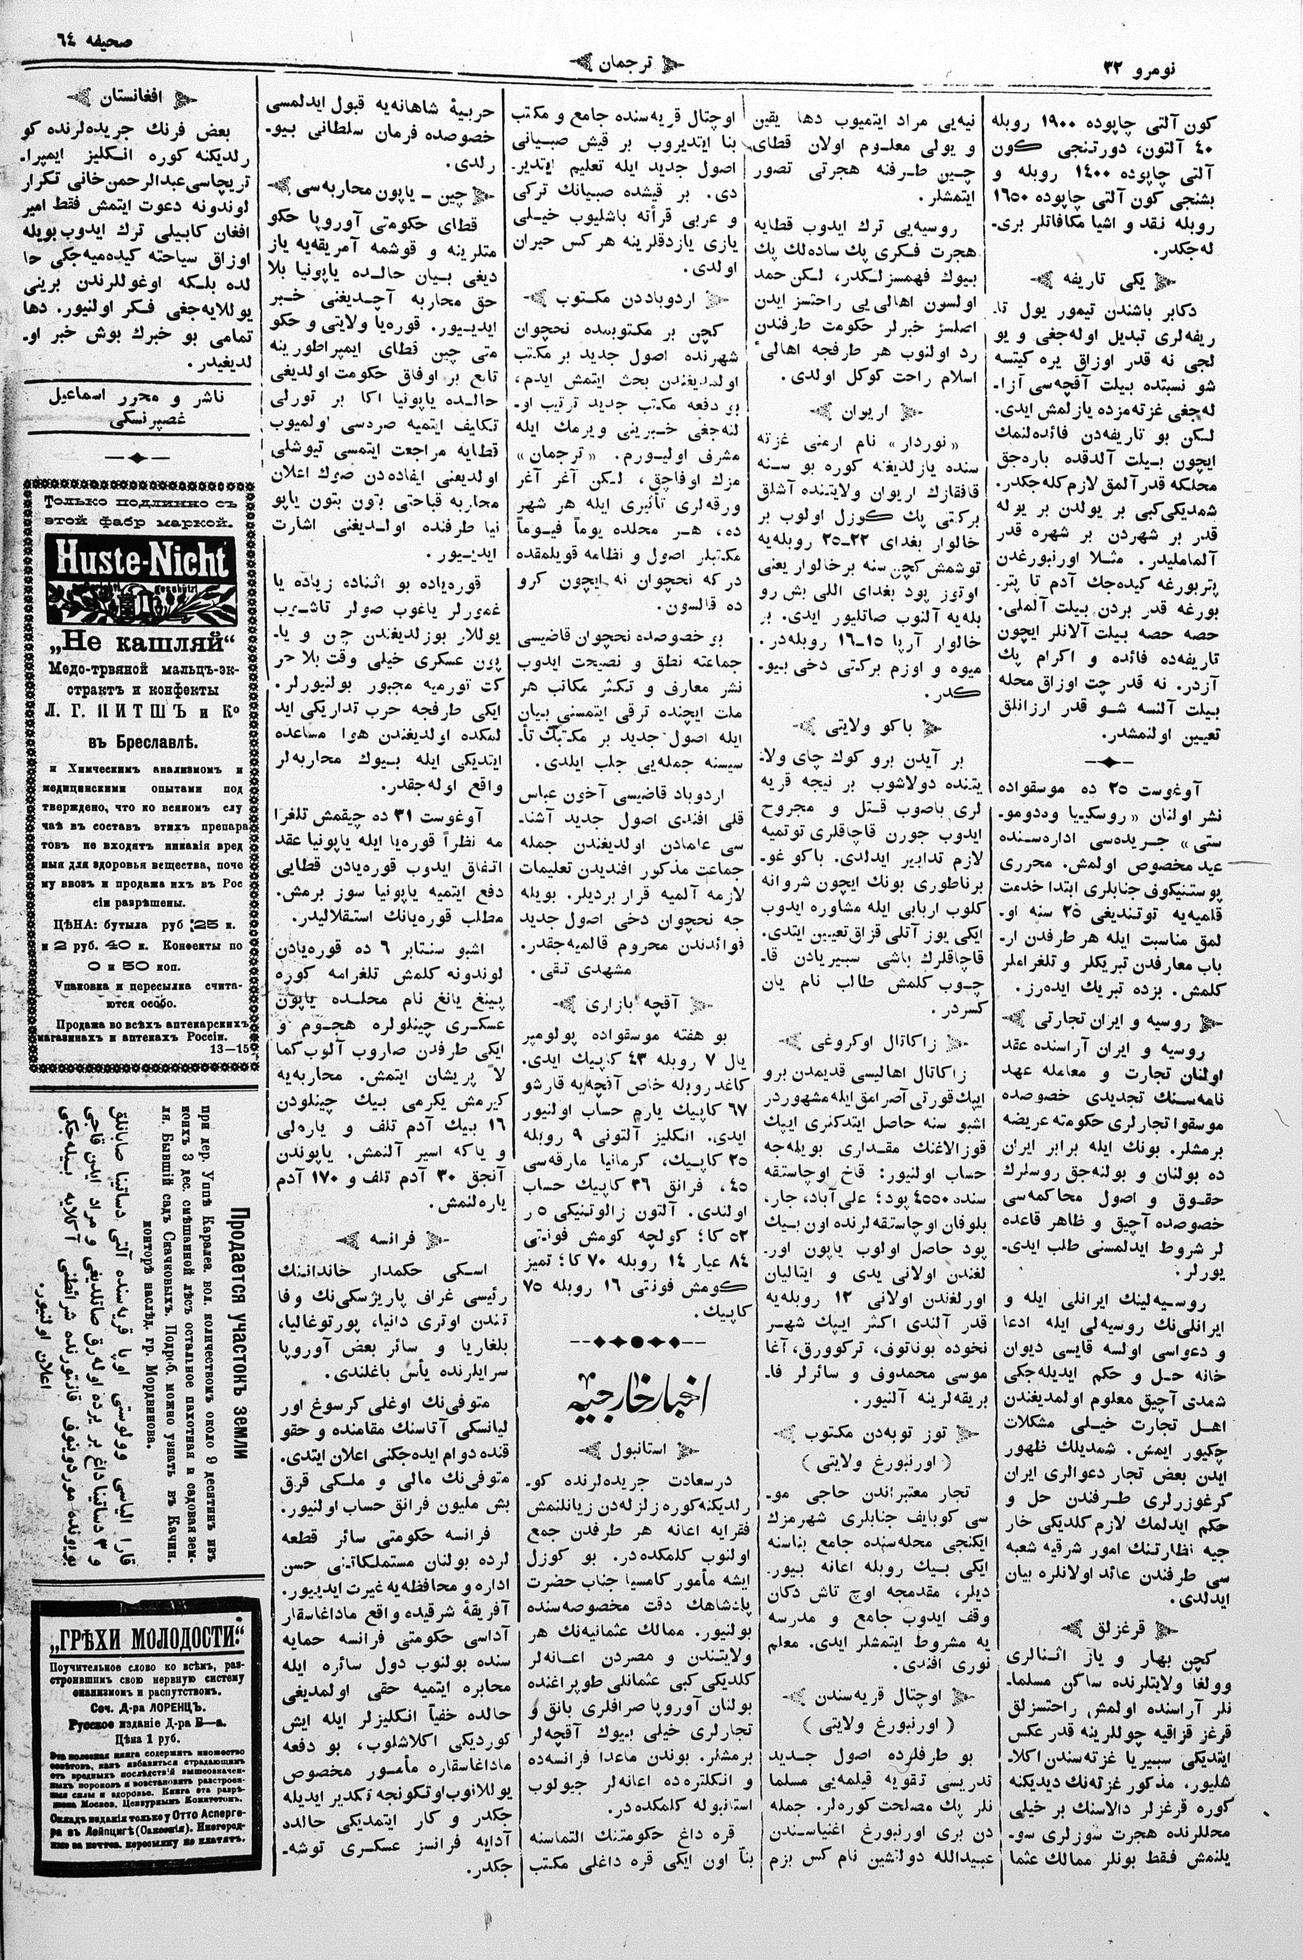 نومرو ٣٢
ترجمان
صحيفه ٦٤
كون آلتى چاپوده ١٩٠٠ روبله
٤٠ آلتون، دورتنجى كون
آلتى چاپوده ١٤٠٠ روبله و
بشنجى كون آلتى چاپوده ١٦٥٠
روبله نقد و اشيا مكافاتلر برى-
له جكدر.
يكى تاريفه
دكابر باشندن تيمور يول تا-
ريفه لرى تبديل اوله جغى و يو
لجى نه قدر اوزاق يره كيتسه
شو نسبتده بيلت آقچه سى آزا-
له جغى غزته مزده يازلمش ايدى.
لكن بو تاريفه دن فائده لنمك
ايچون بيلت آلدقده باره جق
محلكه قدر آلمق لازم كله جكدر.
شمديكى كبى بر يولدن بر يوله
قدر بر شهردن بر شهره قدر
آلماميلدر. مثلا اورنبورغدن
پتربورغه كيده جك آدم تا پتر-
بورغه قدر بردن بيلت آلملى.
حصه حصه بيلت آلانلر ايچون
تاريفه ده فائده و اكرام پك
آزدر. نه قدر چت اوزاق محله
بيلت آلنسه شو قدر ارزانلق
تعيين اولنمشدر.
آوغوست ٢٥ ده موسقواده
نشر اولنان «روسكييا ودومو-
ستى» جريده سى اداره سنده
عيد مخصوص اولمش. محررى
پوستنيكوف جنابلرى ابتدا خدمت
قلميه يه توتنديغى ٢٥ سنه او-
لمق مناسبت ايله هر طرفدن ار-
باب معارفدن تبريكلر و تلغراملر
كلمش. بزده تبريك ايده رز.
روسيه و ايران تجارتى
روسيه و ايران آراسنده عقد
اولنان تجارت و معامله عهد
نامه سنك تجديدى خصوصده
موسقوا تجارلرى حكومته عريضه
برمشلر. بونك ايله برابر ايران
ده بولنان و بولنه جق روسلرك
حقوق و اصول محاكمه سى
خصوصده آچيق و ظاهر قاعده
لر شروط ايدلمسنى طلب ايدى-
يورلر.
روسيه لينك ايرانلى ايله و
ايرانلى نك روسيه لى ايله ادعا
و دعواسى اولسه قايسى ديوان
خانه حل و حكم ايديله جكى
شمدى آچيق معلوم اولمديغندن
اهل تجارت خيلى مشكلات
چكيور ايمش. شمديلك ظهور
ايدن بعض تجار دعوالرى ايران
كرغوزرلرى طرفندن حل و
حكم ايدلمك لازم كلديكى خار
جيه نظارتنك امور شرقيه شعبه
سى طرفندن عائد اولانلره بيان
ايدلدى.
قرغزلق
كچن بهار و ياز اثنالرى
وولغا ولايتلرنده ساكن مسلما-
نلر آراسنده اولمش راحتسزلق
قرغز قزاقيه چوللرينه قدر عكس
ايتديكى سيبريا غزته سندن اكلا-
شليور. مذكور غزته نك ديديكنه
كوره قرغزلر دالاسنك بر خيلى
محللرنده هجرت سوزلرى سو-
يلنمش فقط بونلر ممالك عثما
نيه يى مراد ايتميوب دها يقين
و يولى معلوم اولان قطاى
چين طرفنه هجرتى تصور
ايتمشلر.
روسيه يى ترك ايدوب قطايه
هجرت فكرى پك ساده لك پك
بيوك فهمسزلكدر، لكن حمد
اولسون اهالى يى راحتسز ايدن
اصلسز خبرلر حكومت طرفندن
رد اولنوب هر طرفجه اهالئ
اسلام راحت كوكل اولدى.
اريوان
«نوردار» نام ارمنى غزته
سنده يازلديغنه كوره بو سنه
قافقازك اريوان ولايتنده آشلق
بركتى پك كوزل اولوب بر
خالوار بغداى ٢٢-٢٥ روبله يه
توشمش كچن سنه بر خالوار يعنى
اوتوز پود بغداى اللى بش رو
بله يه آلنوب صاتليور ايدى. بر
خالوار آرپا ١٥-١٦ روبله در.
ميوه و اوزم بركتى دخى بيو-
كدر.
باكو ولايتى
بر آيدن برو كوك چاى ولا-
يتنده دولاشوب بر نيچه قريه
لرى باصوب قتل و مجروح
ايدوب جورن قاچاقلرى توتميه
لازم تدابير ايدلدى. باكو غو-
برناطورى بونك ايچون شروانه
كلوب اربابى ايله مشاوره ايدوب
ايكى يوز آتلى قزاق تعيين ايتدى.
قاچاقلرك باشى سيبريادن قا-
چوب كلمش طالب نام يان
كسردر.
زاكاتال اوكروغى
زاكاتال اهاليسى قديمدن برو
ايپك قورتى آصرامق ايله مشهوردر
اشبو سنه حاصل ايتدكنرى ايپك
قوزالاغنك مقدارى بويله جه
حساب اولنيور: قاخ اوچاستقه
سنده ٤٥٥٠ پود؛ على آباد، جار،
بلوقان اوچاستقه لرنده اون بيك
پود حاصل اولوب ياپون اور-
لغندن اولانى يدى و ايتاليان
اورلغندن اولانى ١٢ روبله يه
قدر آلندى اكثر ايپك شهر
نخوده بوناتوف، تركوورق، آغا
موسى محمدوف و سائرلر فا-
بريقه لرينه آلنيور.
توز توبه دن مكتوب
(اورنبورغ ولايتى)
تجار معتبراندن حاجى مو-
سى كوبايف جنابلرى شهرمزك
ايكنجى محله سنده جامع بناسنه
ايكى بيك روبله اعانه بيور-
ديلر، مقدمجه اوچ تاش دكان
وقف ايدوب جامع و مدرسه
يه مشروط ايتمشلر ايدى. معلم
نورى افندى.
اوچتال قريه سندن
(اورنبورغ ولايتى)
بو طرفلرده اصول جديد
تدريسى تقويه قيلمه يى مسلما
نلر پك مصلحت كوره لر. جمله
دن برى اورنبورغ اغنياسندن
عبيدالله دولشين نام كس بزم
اوچتال قريه سنده جامع و مكتب
بنا ايتديروب بر قيش صبيانى
اصول جديد ايله تعليم ايتدير-
دى. بر قيشده صبيانك تركى
و عربى قرآته باشليوب خيلى
يازى يازدقلرينه هر كس حيران
اولدى.
اردوباددن مكتوب
كچن بر مكتوبمده نحچوان
شهرنده اصول جديد بر مكتب
اولمديغندن بحث ايتمش ايدم،
بو دفعه مكتب جديد ترتيب او-
لنه جغى خبرينى ويرمك ايله
مشرف اوليورم. «ترجمان»
مزك اوفاچق، لكن آغر آغر
ورقه لرى تأثيرى ايله هر شهر
ده، هر محلده يوماً فيوماً
مكتبلر اصول و نظامه قويلمقده
در كه نحچوان نه ايچون كرو
ده قالسون.
بو خصوصده نحچوان قاضيسى
جماعته نطق و نصيحت ايدوب
نشر معارف و تكثر مكاتب هر
ملت ايچنده ترقى ايتمسنى بيان
ايله اصول جديد بر مكتبك تأ-
سيسنه جمله يى جلب ايلدى.
اردوباد قاضيسى آخون عباس
قلى افندى اصول جديد آشنا-
سى عامادن اولديغندن جمله
جماعت مذكور افنديدن تعليمات
لازمه آلميه قرار برديلر. بويله
جه نحچوان دخى اصول جديد
فوائدندن محروم قالميه جقدر.
مشهدى تقى.
آقچه بازارى
بو هفته موسقواده پولومپر
يال ٧ روبله ٤٣ كاپيك ايدى.
كاغد روبله خاص آقچه يه قارشو
٦٧ كاپيك يارم حساب اولنيور
ايدى. انكليز آلتونى ٩ روبله
٢٥ كاپيك، كرمانيا مارقه سى
٤٥، فرانق ٣٦ كاپيك حساب
اولندى. آلتون زالوتنيكى ٥ر
٥٢ كا؛ كولچه كومش فونتى
٨٤ عيار ١٤ روبله ٧٠ كا؛ تميز
كومش فونتى ١٦ روبله ٧٥
كاپيك.
اخبار خارجيه
استانبول
درسعادت جريده لرنده كو-
رلديكنه كوره زلزله دن زيانلنمش
فقرايه اعانه هر طرفدن جمع
اولنوب كلمكده در. بو كوزل
ايشه مأمور كامسيا جناب حضرت
پادشاهك دقت مخصوصه سنده
بولنيور. ممالك عثمانيه نك هر
ولايتندن و مصردن اعانه لر
كلديكى كبى عثمانلى طوپراغنده
بولنان آوروپا صرافلرى بانق و
تجارلرى خيلى بيوك آقچه لر
برمشلر. بوندن ماعدا فرانسه ده
و انكلتره ده اعانه لر جيولوب
استانبوله كلمكده در.
قره داغ حكومتنك التماسنه
بناً اون ايكى قره داغلى مكتب
حربيۀ شاهانه يه قبول ايدلمسى
خصوصده فرمان سلطانى بيو-
رلدى.
چين - ياپون محاربه سى
قطاى حكومتى آوروپا حكو
متلرينه و قوشمه آمريقه يه ياز
ديغى بيان حالده ياپونيا بلا
حق محاربه آچديغنى خبر
ايديور. قوره يا ولايتى و حكو
متى چين قطاى ايمپراطورينه
تابع بر اوفاق حكومت اولديغى
حالده ياپونيا اكا بر تورلى
تكاليف ايتميه صره سى اولميوب
قطايه مراجعت ايتمسى تيوشلى
اولديغنى افاده دن صوك اعلان
محاربه قباحتى بتون بتون ياپو
نيا طرفنده اولديغنى اشارت
ايديور.
قوره ياده بو اثناده زياده يا
غمورلر ياغوب صولر تاشيب
يوللار بوزلديغندن چن و يا-
پون عسكرى خيلى وقت بلا حر
كت تورميه مجبور بولنيورلر.
ايكى طرفجه حرب تداريكى ايد
لمكده اولديغندن هوا مساعده
ايتديكى ايله بيوك محاربه لر
واقع اوله جقدر.
آوغوست ٣١ ده چيقمش تلغرا
مه نظراً قوره يا ايله ياپونيا عقد
اتفاق ايدوب قوره يادن قطايى
دفع ايتميه ياپونيا سوز برمش.
مطلب قوره يانك استقلاليدر.
اشبو سنتابر ٦ ده قوره يادن
لوندونه كلمش تلغرامه كوره
پينغ يانغ نام محلده ياپون
عسكرى چينلولره هجوم و
ايكى طرفدن صاروب آلوب كما
لاً پريشان ايتمش. محاربه يه
كيرمش يكرمى بيك چينلودن
١٦ بيك آدم تلف و يارەلى
و ياكه اسير آلنمش. ياپوندن
آنجق ٣٠ آدم تلف و ١٧٠ آدم
ياره لنمش.
فرانسه
اسكى حكمدار خاندانك
رئيسى غراف پاريژسكى نك وفا
تندن اوترى دانيا، پورتوغاليا،
بلغاريا و سائر بعض آوروپا
سرايلرنده يأس باغلندى.
متوفى نك اوغلى كرسوغ اور
ليانسكى آتاسنك مقامنده و حقو
قنده دوام ايده جكنى اعلان ايتدى.
متوفى نك مالى و ملكى قرق
بش مليون فرانق حساب اولنيور.
فرانسه حكومتى سائر قطعه
لرده بولنان مستملكاتنى حسن
اداره و محافظه يه غيرت ايديور.
آفريقۀ شرقيده واقع ماداغاسقار
آداسى حكومتى فرانسه حمايه
سنده بولنوب دول سائره ايله
محابره ايتميه حقى اولمديغى
حالده خفياً انكليزلر ايله ايش
كورديكى اكلاشلوب، بو دفعه
ماداغاسقاره مأمور مخصوص
يوللانوب اوتكونجه تكدير ايديله
جكدر و كار ايتمديكى حالده
آدايه فرانسز عسكرى توشه-
جكدر.
افغانستان
بعض فرنك جريده لرنده كو
رلديكنه كوره انكليز ايمپرا-
تريچاسى عبدالرحمن خانى تكرار
لوندونه دعوت ايتمش فقط امير
افغان كابيلى ترك ايدوب بويله
اوزاق سياحته كيده ميه جكى حا
لده بلكه اوغوللرندن برينى
يوللايه جغى فكر اولنيور. دها
تمامى بو خبرك بوش خبر او-
لديغيدر.
ناشر و محرر اسماعيل
غصپرنسكى
Только подлинно съ
этой фабр маркой.
Huste-Nicht
„Не кашляй“
Медо-травяной мальцъ-эк-
страктъ и конфекты
Л. Г. ПИТШЪ и Ко
въ Бреславлѣ.
и Химическимъ анализмомъ и
медицинскими опытами под
тверждено, что во всякомъ слу
чаѣ въ составъ этихъ препара
товъ не входятъ никакія вред
ныя для здоровья вещества, поче
му ввозъ и продажа ихъ въ Рос
сіи разрѣшены.
ЦѢНА: бутыла руб 25 к.
и 2 руб. 40 к. Конфекты по
0 и 50 коп.
Упаковка и пересылка счита-
ются особо.
Продажа во всѣхъ аптекарскихъ
магазинахъ и аптекахъ Россіи.
13—15
Продается участокъ земли
при дер. Уппѣ Каралез. вол. количествомъ около 9 десятинъ изъ
коихъ 3 дес. смѣшанной лѣсъ остальное пахотная и садовая зем-
ля. Бывшій садъ Скачковыхъ. Подроб. можно узнать въ Качин.
конторѣ наслѣд. гр. Мордвинова.
قارا الياسى وولوستى اوپا قريه سنده آلتى دساتينا صابانلق
و ٣ دساتينا داغ بر يرده اوله رق صاتلديغى و مراد ايدن قاچى
بويونده موردوينوف قانتورنده شرائطنى آكلايه بيله جكى
اعلان اولنيور.
„ГРѢХИ МОЛОДОСТИ“
Поучительное слово ко всѣмъ, раз-
строившимъ свою нервную систему
онанизмомъ и распутствомъ.
Соч. Д-ра ЛОРЕНЦЪ.
Русское изданіе Д-ра Б—а.
Цѣна 1 руб.
Эта полезная книга содержитъ множество
совѣтовъ, какъ избавиться страдающимъ
отъ вредныхъ послѣдствій вышеозначен-
ныхъ пороковъ и возстановить разстроен-
ныя силы и здоровье. Книга эта разрѣ-
шена Москов. Цензурнымъ Комитетомъ.
Складъ изданія только у Отто Асперге-
ра въ Лейпцигѣ (Саксонія). Иногород-
ніе за почтов. пересылку не платятъ.